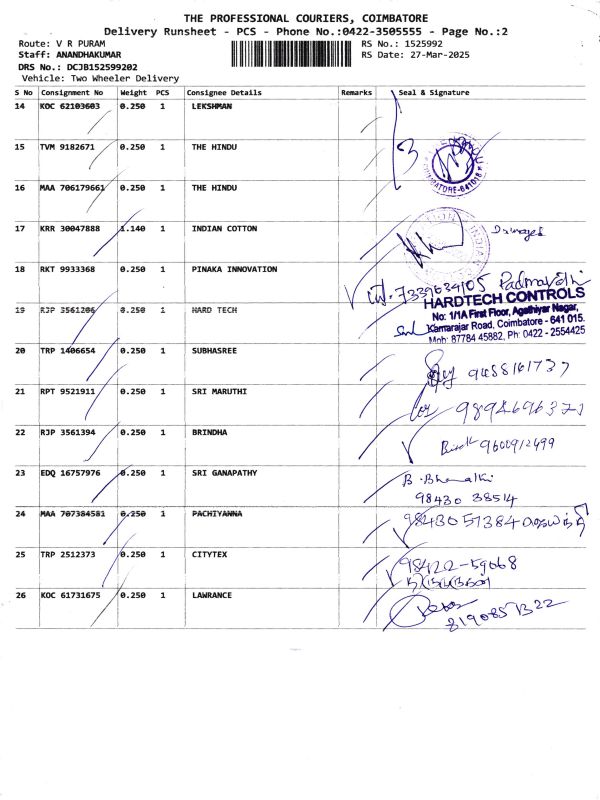 THE PROFESSIONAL COURIERS, COIMBATORE
Delivery Runsheet - PCS - Phone No.:0422-3505555 - Page No.:2
Route: V R PURAM RS No.: 1525992
Staff: ANANDHAKUMAR RS Date: 27-Mar-2025
DRS No.: DCJB152599202
Vehicle: Two Wheeler Delivery
S No Consignment No Weight PCS Consignee Details Remarks Seal & Signature
14 KOC 62103603 0.250 1 LEKSHMAN
15 TVM 9182671 0.250 1 THE HINDU
3
COIMBATORE-641018
16 MAA 706179661 0.250 1 THE HINDU
17 KRR 30047888 1.140 1 INDIAN COTTON
18 RKT 9933368 0.250 1 PINAKA INNOVATION
7339634105 Padmavathi
19 RJP 3561206 0.250 1 HARD TECH
HARDTECH CONTROLS
No: 1/1A First Floor, Agathiyar Nagar,
Kamarajar Road, Coimbatore - 641 015.
Mob: 87784 45882, Ph: 0422 - 2554425
20 TRP 1406654 0.250 1 SUBHASREE
9458161737
21 RPT 9521911 0.250 1 SRI MARUTHI
9894696371
22 RJP 3561394 0.250 1 BRINDHA
9600912499
23 EDQ 16757976 0.250 1 SRI GANAPATHY
98430 38514
24 MAA 707384581 0.250 1 PACHIYANNA
98430 57384
25 TRP 2512373 0.250 1 CITYTEX
98422-59668
26 KOC 61731675 0.250 1 LAWRANCE